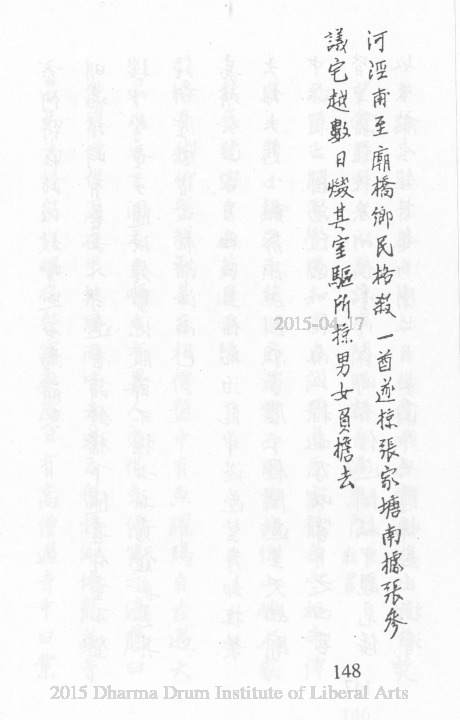 河涇甫至廟橋鄉民格殺一酋遂掠張家塘南據張參
議宅越數日燬其室驅所掠男女負擔去
2015-04-17
148
2015 Dharma Drum Institute of Liberal Arts